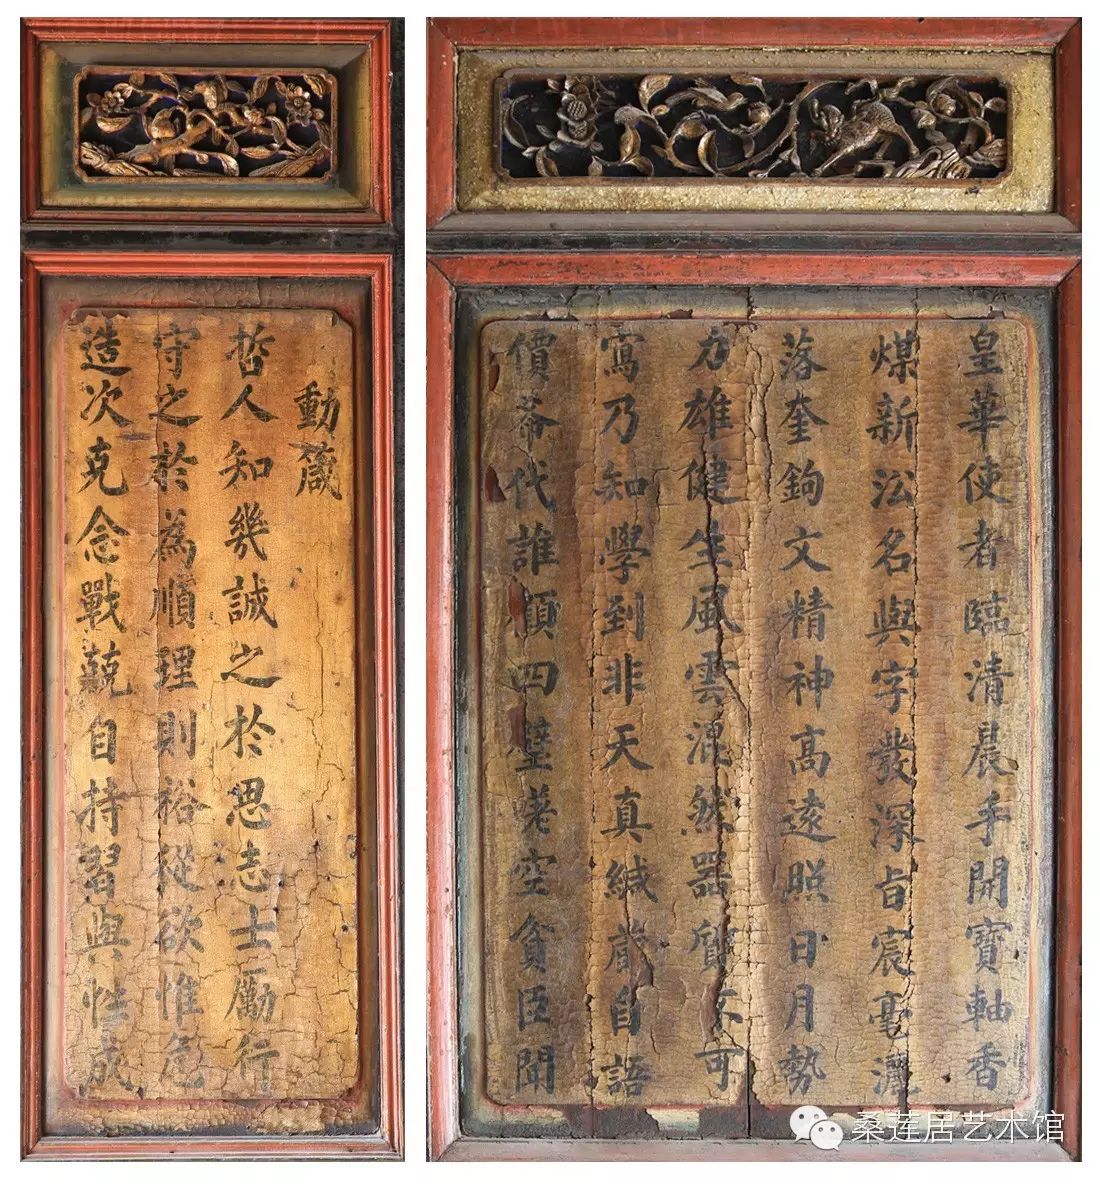 動箴
哲人知幾誠之於思志士勵行
守之於為順理則裕從欲惟危
造次克念戰兢自持習與性成
皇華使者臨清晨手開寶軸香
煤新名與字發深旨宸毫灑
落奎鉤文精神髙逺照日月勢
力雄健生風雲混然器質不可
寫乃知學到非天真緘藏自語
價代誰顧四壁空貧臣聞
桑莲居艺术馆